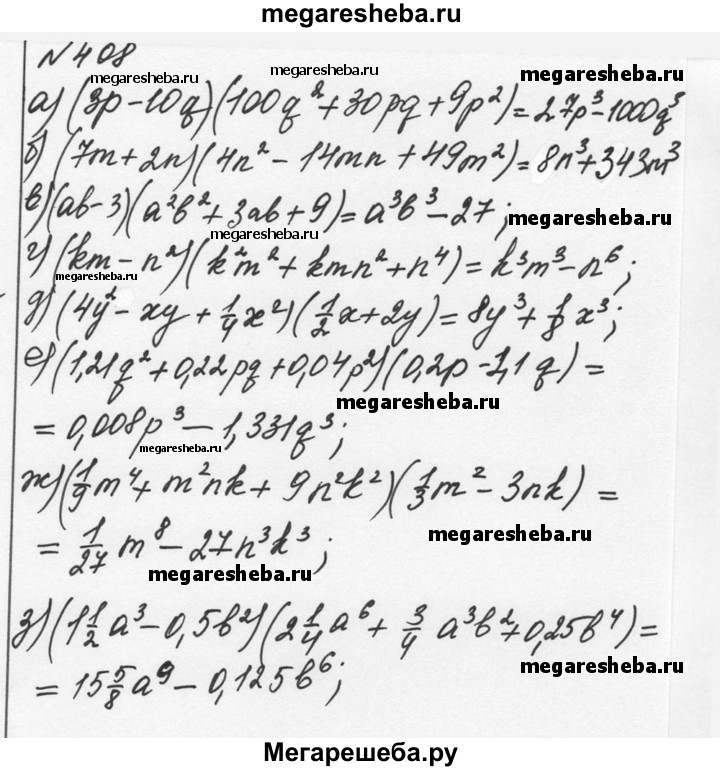 megaresheba.ru
N 408
megaresheba.ru
megaresheba.ru
megaresheba.ru
а) (3p - 10q)(100q² + 30pq + 9p²) = 27p³ - 1000q³
б) (7m + 2n)(4n² - 14mn + 49m²) = 8n³ + 343m³
в) (ab - 3)(a²b² + 3ab + 9) = a³b³ - 27;
megaresheba.ru
megaresheba.ru
г) (km - n²)(k²m² + kmn² + n⁴) = k³m³ - n⁶;
megaresheba.ru
д) (4y² - xy + 1/4 x²)(1/2 x + 2y) = 8y³ + 1/8 x³;
е) (1,21q² + 0,22pq + 0,04p²)(0,2p - 1,1q) =
megaresheba.ru
= 0,008p³ - 1,331q³;
megaresheba.ru
ж) (1/9 m⁴ + m²nk + 9n²k²)(1/3 m² - 3nk) =
= 1/27 m⁸ - 27n³k³;
megaresheba.ru
megaresheba.ru
з) (1 1/2 a³ - 0,5b²)(2 1/4 a⁶ + 3/4 a³b² + 0,25b⁴) =
megaresheba.ru
= 15 5/8 a⁹ - 0,125b⁶;
Мегарешеба.ру